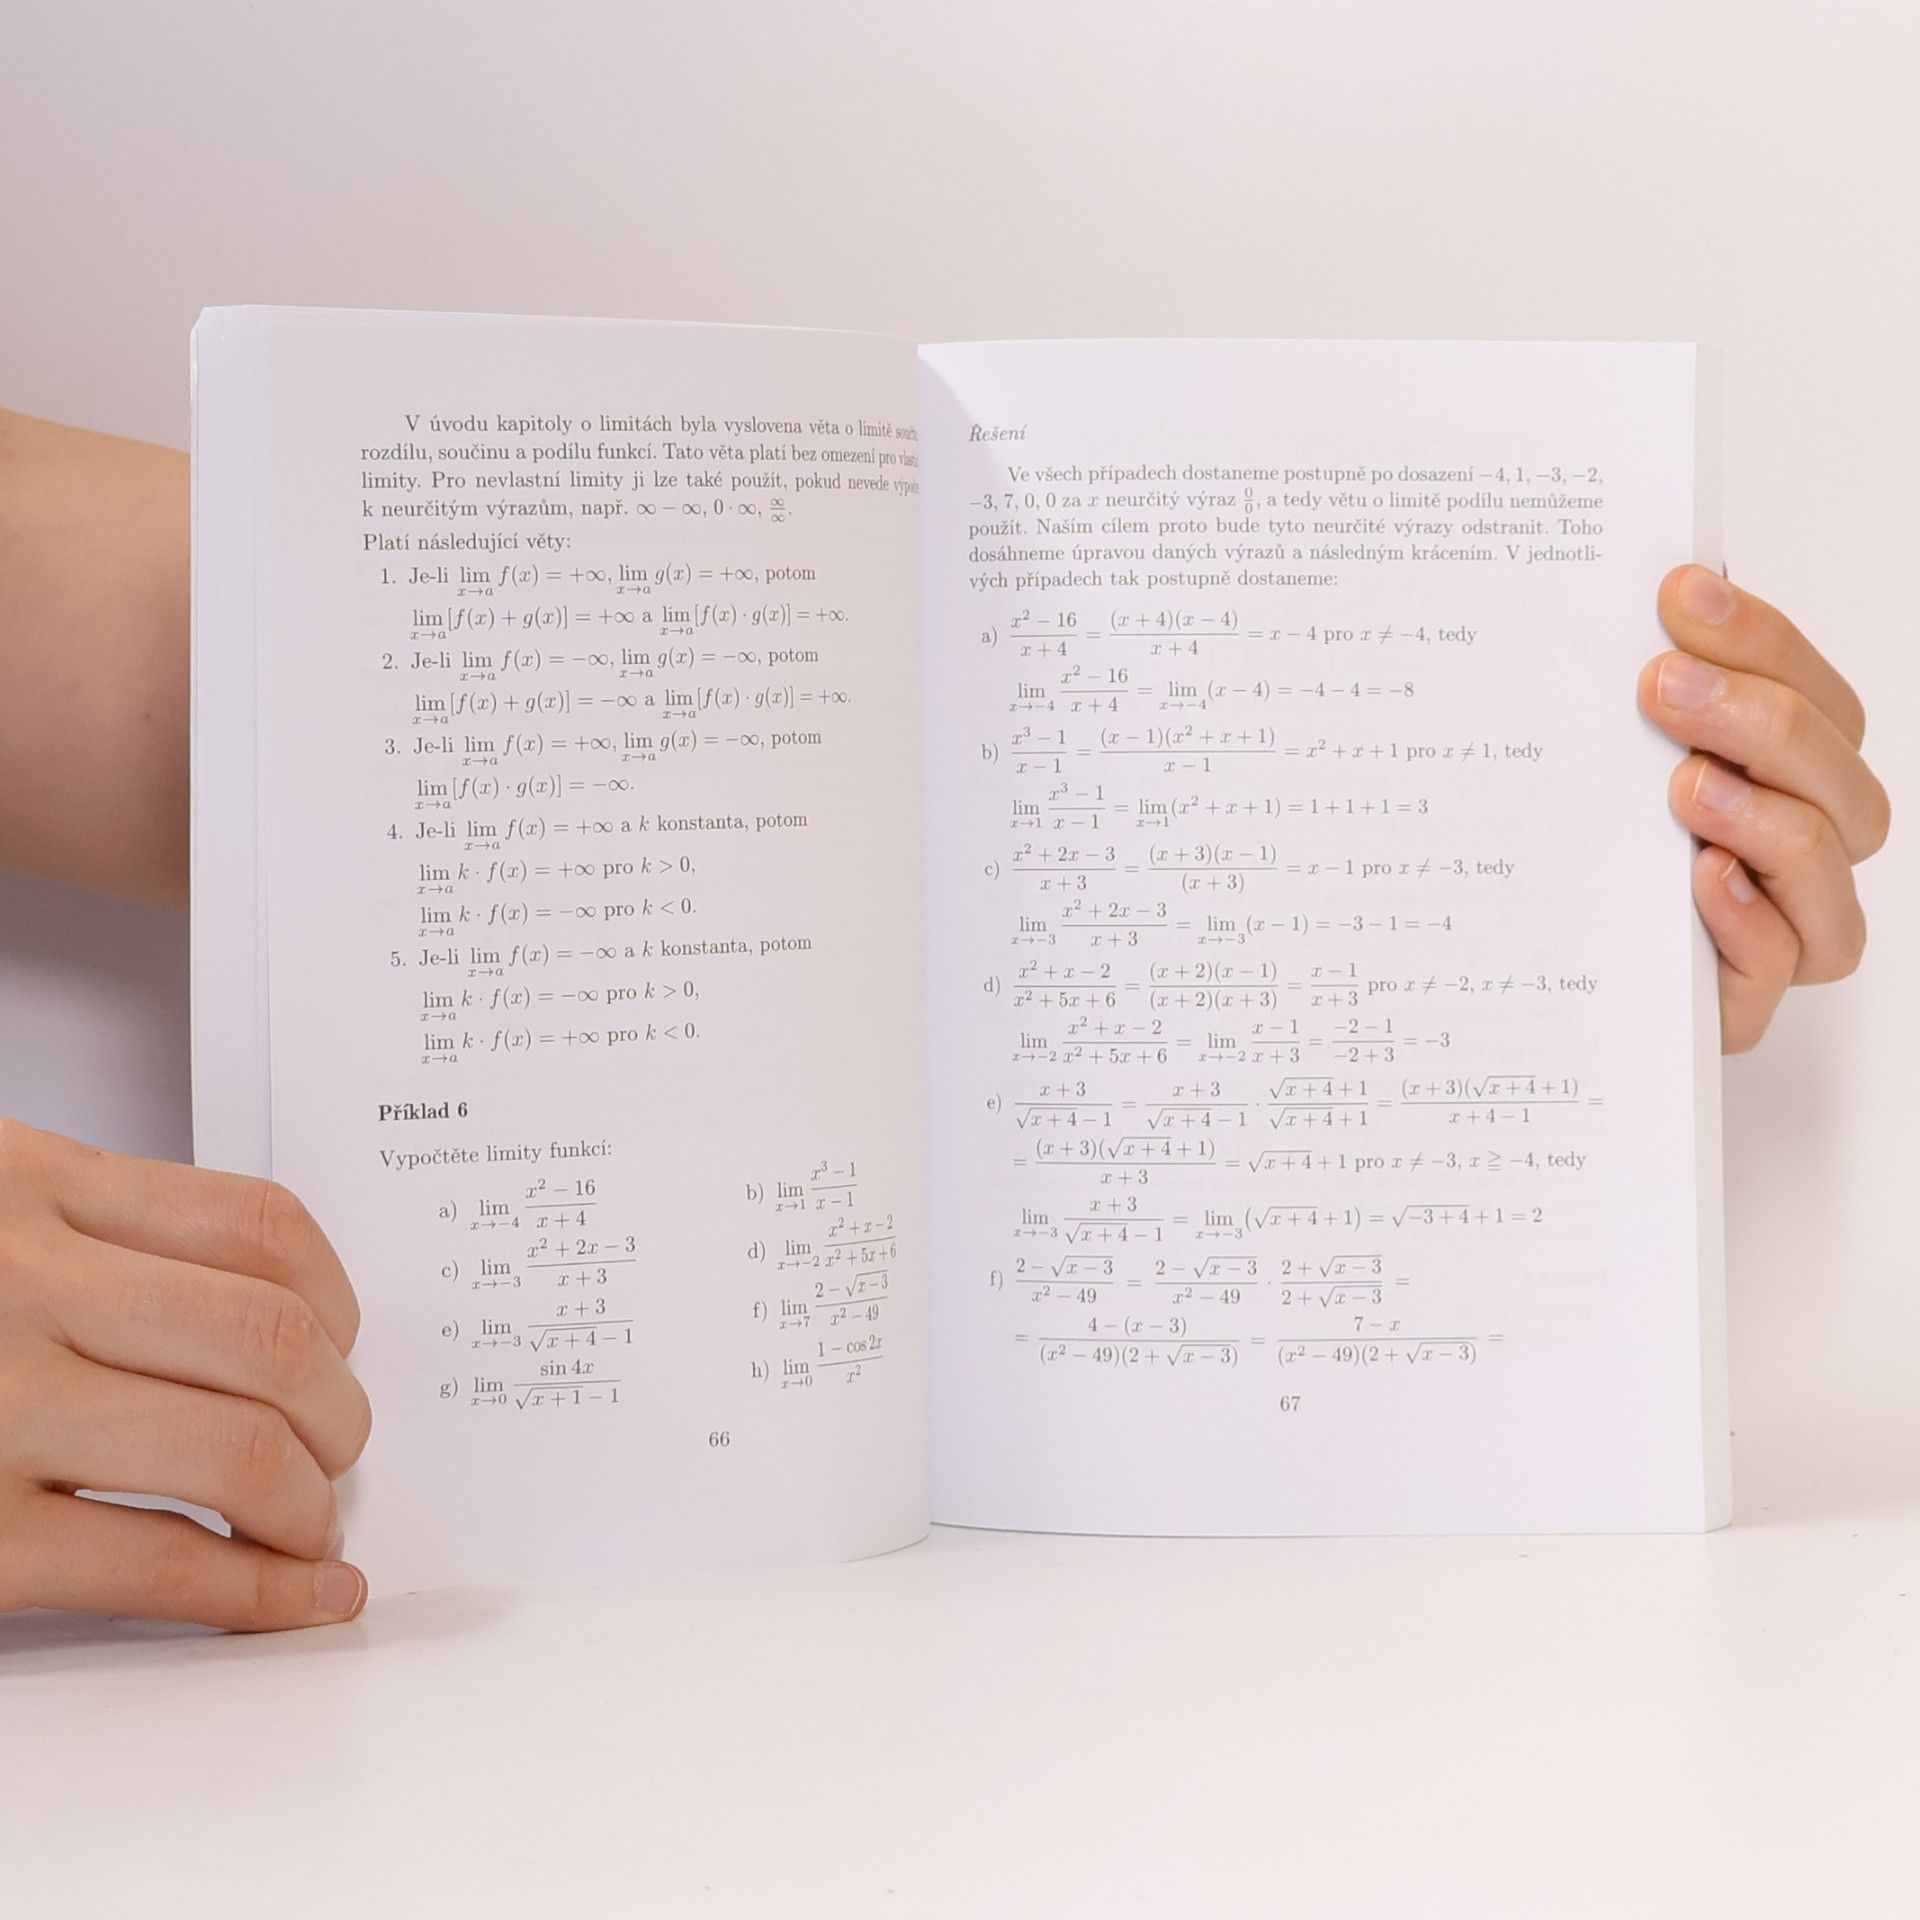 V úvodu kapitoly o limitách byla vyslovena věta o limitě
rozdílu, součinu a podílu funkcí. Tato věta platí bez omezení pro
limity. Pro nevlastní limity ji lze také použít, pokud nevede
k neurčitým výrazům, např. ∞ − ∞, 0 · ∞, ∞/∞.
Platí následující věty:
1. Je-li lim_{x→a} f(x) = +∞, lim_{x→a} g(x) = +∞, potom
lim_{x→a} [f(x) + g(x)] = +∞ a lim_{x→a} [f(x) · g(x)] = +∞.
2. Je-li lim_{x→a} f(x) = −∞, lim_{x→a} g(x) = −∞, potom
lim_{x→a} [f(x) + g(x)] = −∞ a lim_{x→a} [f(x) · g(x)] = +∞.
3. Je-li lim_{x→a} f(x) = +∞, lim_{x→a} g(x) = −∞, potom
lim_{x→a} [f(x) · g(x)] = −∞.
4. Je-li lim_{x→a} f(x) = +∞ a k konstanta, potom
lim_{x→a} k · f(x) = +∞ pro k > 0,
lim_{x→a} k · f(x) = −∞ pro k < 0.
5. Je-li lim_{x→a} f(x) = −∞ a k konstanta, potom
lim_{x→a} k · f(x) = −∞ pro k > 0,
lim_{x→a} k · f(x) = +∞ pro k < 0.
Příklad 6
Vypočtěte limity funkcí:
a) lim_{x→−4} (x² − 16)/(x + 4) b) lim_{x→1} (x³ − 1)/(x − 1)
c) lim_{x→−3} (x² + 2x − 3)/(x + 3) d) lim_{x→−2} (x² + x − 2)/(x² + 5x + 6)
e) lim_{x→−3} (x + 3)/(√(x + 4) − 1) f) lim_{x→7} (2 − √(x − 3))/(x² − 49)
g) lim_{x→0} (sin 4x)/(√(x + 1) − 1) h) lim_{x→0} (1 − cos 2x)/x²
66
Řešení
Ve všech případech dostaneme postupně po dosazení −4, 1, −3, −2,
−3, 7, 0, 0 za x neurčitý výraz 0/0, a tedy větu o limitě podílu nemůžeme
použít. Naším cílem proto bude tyto neurčité výrazy odstranit. Toho
dosáhneme úpravou daných výrazů a následným krácením. V jednotli-
vých případech tak postupně dostaneme:
a) (x² − 16)/(x + 4) = ((x + 4)(x − 4))/(x + 4) = x − 4 pro x ≠ −4, tedy
lim_{x→−4} (x² − 16)/(x + 4) = lim_{x→−4} (x − 4) = −4 − 4 = −8
b) (x³ − 1)/(x − 1) = ((x − 1)(x² + x + 1))/(x − 1) = x² + x + 1 pro x ≠ 1, tedy
lim_{x→1} (x³ − 1)/(x − 1) = lim_{x→1} (x² + x + 1) = 1 + 1 + 1 = 3
c) (x² + 2x − 3)/(x + 3) = ((x + 3)(x − 1))/((x + 3)) = x − 1 pro x ≠ −3, tedy
lim_{x→−3} (x² + 2x − 3)/(x + 3) = lim_{x→−3} (x − 1) = −3 − 1 = −4
d) (x² + x − 2)/(x² + 5x + 6) = ((x + 2)(x − 1))/((x + 2)(x + 3)) = (x − 1)/(x + 3) pro x ≠ −2, x ≠ −3, tedy
lim_{x→−2} (x² + x − 2)/(x² + 5x + 6) = lim_{x→−2} (x − 1)/(x + 3) = (−2 − 1)/(−2 + 3) = −3
e) (x + 3)/(√(x + 4) − 1) = (x + 3)/(√(x + 4) − 1) · (√(x + 4) + 1)/(√(x + 4) + 1) = ((x + 3)(√(x + 4) + 1))/(x + 4 − 1) =
= ((x + 3)(√(x + 4) + 1))/(x + 3) = √(x + 4) + 1 pro x ≠ −3, x ≧ −4, tedy
lim_{x→−3} (x + 3)/(√(x + 4) − 1) = lim_{x→−3} (√(x + 4) + 1) = √(−3 + 4) + 1 = 2
f) (2 − √(x − 3))/(x² − 49) = (2 − √(x − 3))/(x² − 49) · (2 + √(x − 3))/(2 + √(x − 3)) =
= (4 − (x − 3))/((x² − 49)(2 + √(x − 3))) = (7 − x)/((x² − 49)(2 + √(x − 3))) =
67